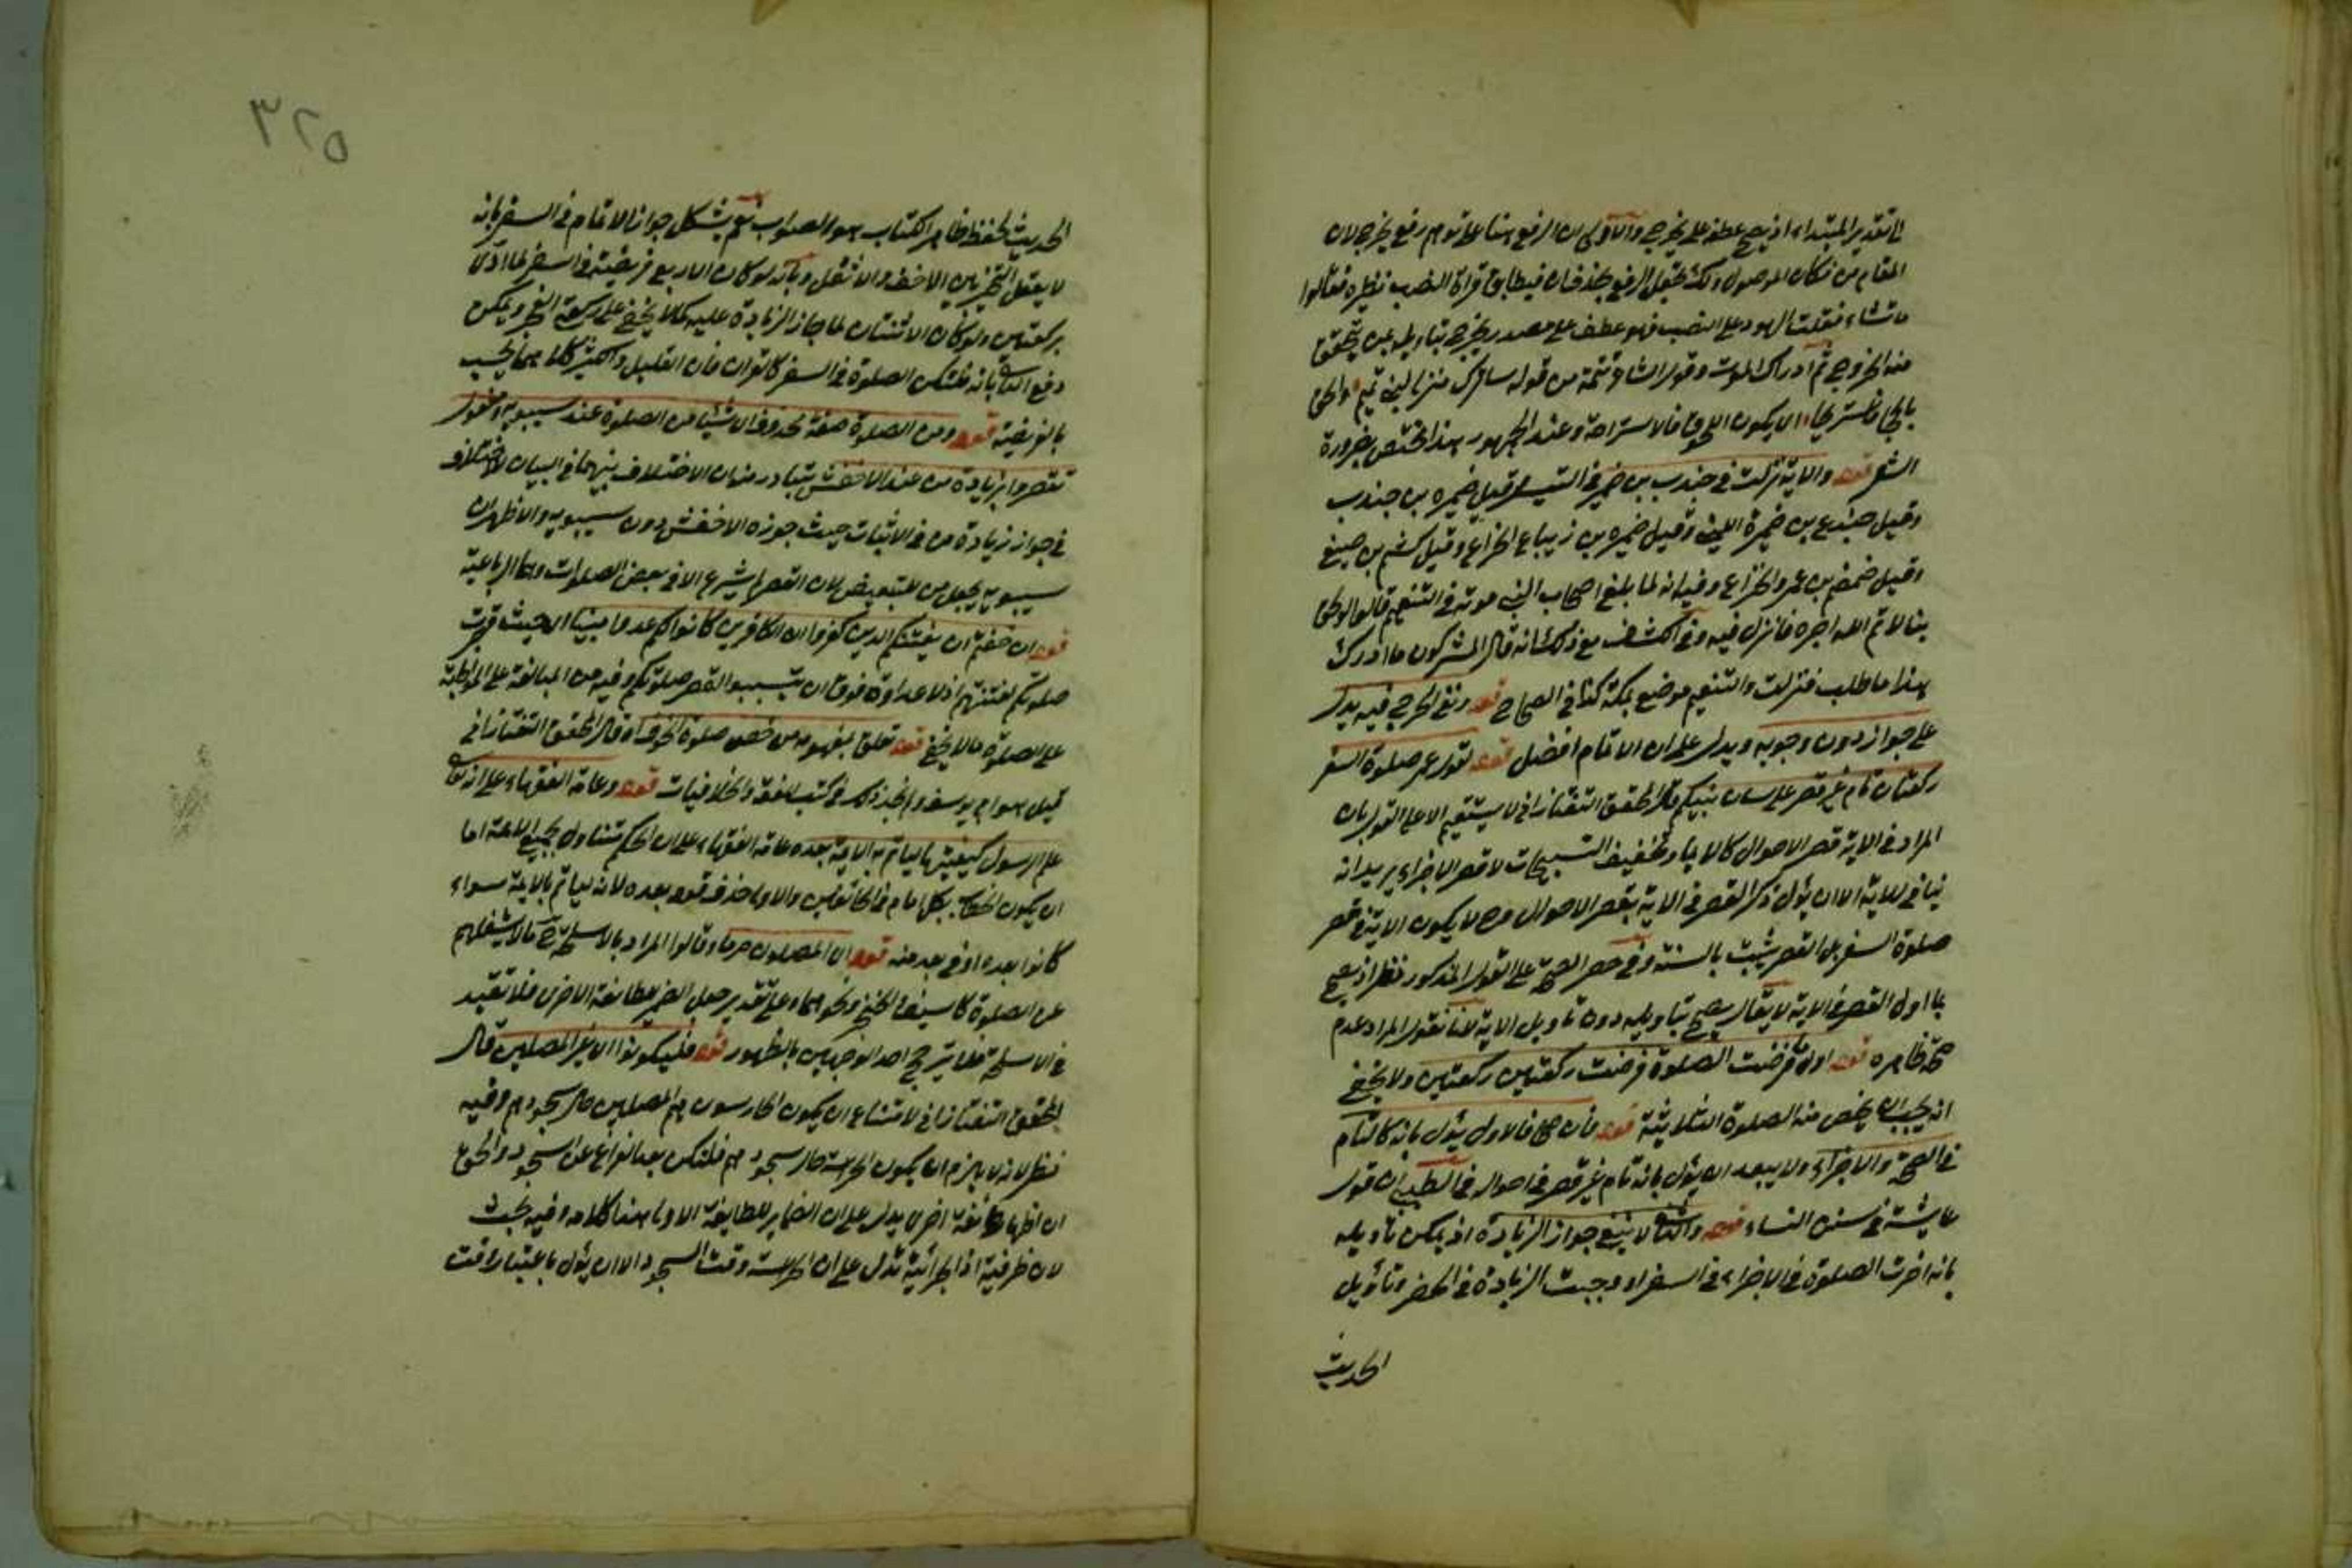 المقام من مكان الموصول ولك حمل الرفع بحذفان فيطابق قراة النصب نظيره فقالوا
ما تشاء فقلت الهود على النصب فهو عطف على مصدر يخرج بتاويله بمن يتحقق
منه الخروج ثم ادراك الموت وقول الشاعر تتمة من قوله ساترك منزلي لبني تميم والحق
بالحجاز فاستريحا الا يكون اللحوق فالاستراحة وعند الجمهور هذا مختص بضرورة
الشعر قوله والاية نزلت في جندب بن ضمرة في التيسير قيل ضمرة بن جندب
وقيل جندع بن ضمرة الليثي وقيل ضمرة بن زنباع الخزاعي وقيل اكثم بن صيفي
وقيل ضمضم بن عمرو الخزاعي وفيه انه لما بلغ اصحاب النبي موته في التنعيم قالوا لو لحق
بنا لاتم الله اجره فانزل فيه وفي الكشاف مع ذلك انه قال المشركون ما ادرك
هذا ما طلب فنزلت والتنعيم موضع بمكة كذا في الصحاح قوله ونفي الحرج فيه يدل
على جوازه دون وجوبه ويدل على ان الاتمام افضل قوله لقول عمر صلوة السفر
ركعتان تام غير قصر على لسان نبيكم قال المحقق التفتازاني لا يستقيم الا على القول بان
المراد في الاية قصر الاحوال كالايماء وتخفيف التسبيحات لا قصر الاجزاء يريد انه
ينافي للاية الا ان يؤل ذكر القصر في الاية بقصر الاحوال وح لا يكون الاية في قصر
صلوة السفر بل القصر يثبت بالسنة وفي حصر الصحة على القول المذكور نظر اذ يصح
بما اول القصر في الاية لا يقال يصح بتاويله دون تاويل الاية لانا نقول المراد عدم
صحة ظاهره قوله اول ما فرضت الصلوة فرضت ركعتين ركعتين ولا يخفى
انه يجب ان يخص منه الصلوة الثلاثية قوله فان صح فالاول يؤل بانه كالتام
في الصحة والاجزاء ولا يبعد ان يؤل بانه تام غير قصر في احواله في الطيبي ان قول
عايشة في سنن النساء قوله والثاني لا ينفي جواز الزيادة اذ يمكن تاويله
بانه اقرت الصلوة في الاجزاء في السفر ووجبت الزيادة في الحضر وتاويل
الحديث
٣٢٥
الحديث لحفظ ظاهر الكتاب هو الصواب نعم يشكل جواز الاتمام في السفر بانه
لا يعقل التخيير بين الاخف والاثقل وبانه لو كان الاربع فريضة في السفر لما ادى
بركعتين ولو كان الاثنتان لما جاز الزيادة عليه كما لا يخفى على ركعة الفجر ويمكن
دفع الثاني بانه فلتكن الصلوة في السفر كالقران فان القليل والكثير كلاهما يحسب
بالفريضة قوله ومن الصلوة صفة محذوف اي شيئا من الصلوة عند سيبويه ومفعول
تقصروا بزيادة من عند الاخفش يتبادر منه ان الاختلاف بينهما في البيان لاختلاف
في جواز زيادة من في الاثبات حيث جوزه الاخفش دون سيبويه والاظهر ان
سيبويه يجعل من للتبعيض لان القصر لم يشرع الا في بعض الصلوات وهي الرباعية
قوله ان خفتم ان يفتنكم الذين كفروا ان الكافرين كانوا لكم عدوا مبينا اي حيث قصرت
صلوتكم لفتنتهم اذ لا عداوة فوق ان تسببوا لقصر صلوتكم وفيه من المبالغة على المواظبة
على الصلوة ما لا يخفى قوله تعلق بمفهومه من خص صلوة الخوف قال المحقق التفتازاني
قيل هو ابو يوسف ولم نجد ذلك في كتب الفقه والخلافيات قوله وعامة الفقهاء على انه تعالى
علم الرسول كيفيتها ليأتم به الاية بعده عامة الفقهاء على ان الحكم متناول لجميع الامة اما
ان يكون الخطاب لكل امام في الخائفين والاولى حذف قوله بعده لانه ليأتم به الاية سواء
كانوا بعده او في بعد منه قوله اي المصلون حزما وقالوا المراد بالاسلحة ما لا يشغلهم
عن الصلوة كالسيف والخنجر ونحوهما وعلى تقدير جعل الضمير للطائفة الاخرى فلا تقييد
في الاسلحة فلا يترجح احد الوجهين بالظهور قوله فليكونوا اي غير المصلين قال
المحقق التفتازاني لامتناع ان يكون الحارسون هم المصلين حال سجودهم وفيه
نظر لانه لا يلزم ان يكون الحراسة حال سجودهم فلتكن بعد الفراغ عن السجود والحق
ان اظهار طائفة اخرى يدل على ان الضمائر للطائفة الاولى هذا كلامه وفيه بحث
لان ظرفية اذا الجزائية تدل على ان الحراسة وقت السجود الا ان يؤل باعتبار وقت